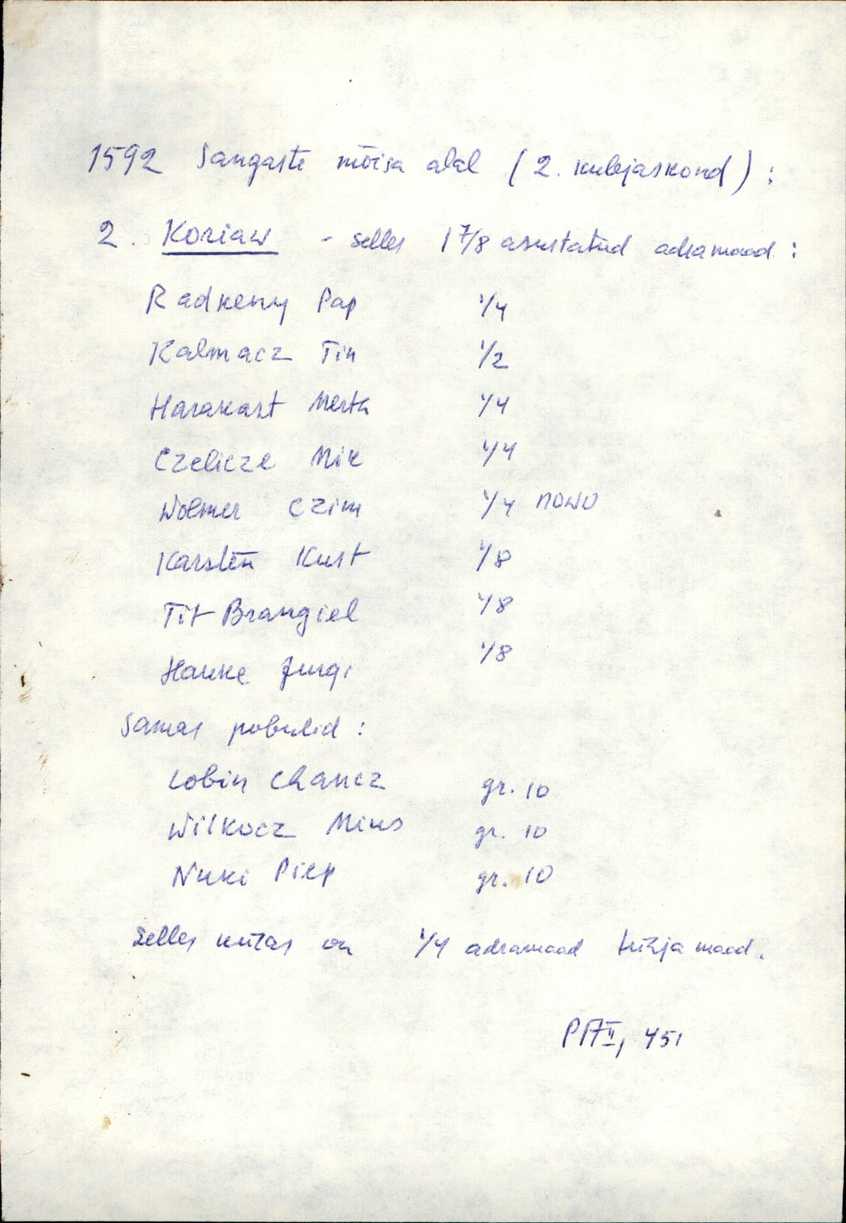 1592 Sangaste mõisa alal (2. kubjaskond):
2. Koriaw - selles 1 7/8 asustatud adramaad:
Radkeny Pap 1/4
Kalmacz Tin 1/2
Harakast Mertk 1/4
Czelicze Mik 1/4
Wolmer Czim 1/4 nowo
Karsten Kust 1/8
Tit Brangiel 1/8
Hanke Jurgi 1/8
Samas pobulid:
Lobin Chancz gr. 10
Wilkocz Mius gr. 10
Nuki Piep gr. 10
Selles külas on 1/4 adramaad tühja maad.
PA II, 451